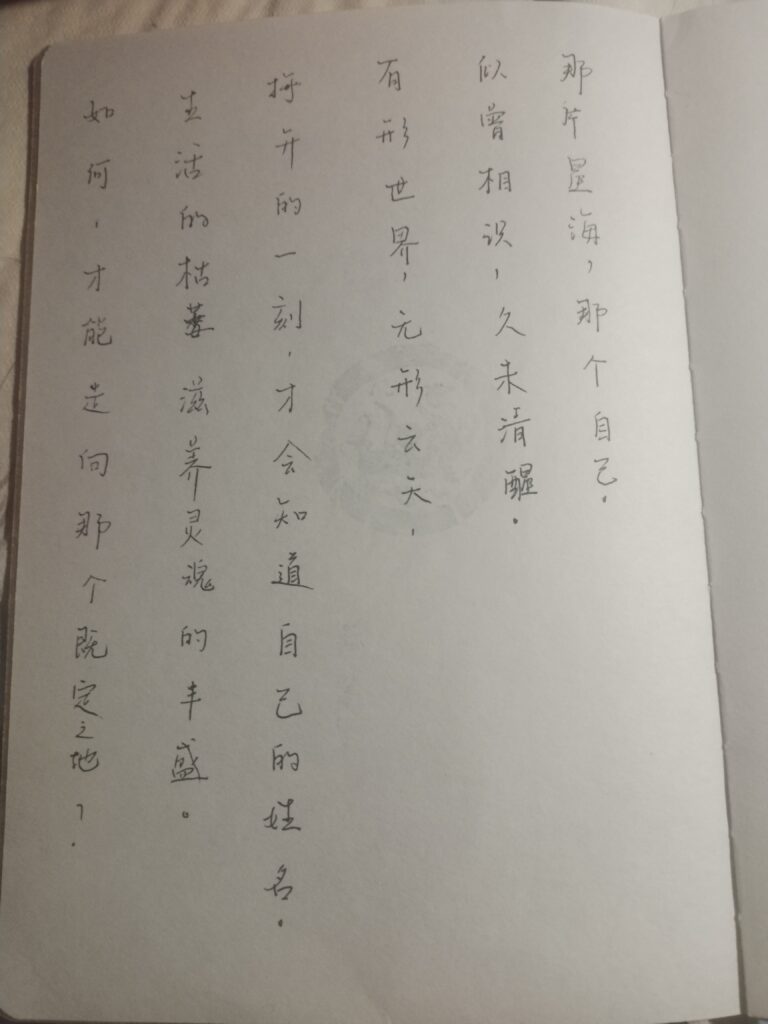 那片星海，那个自己。
似曾相识，久未清醒。
有形世界，无形云天，
掰开的一刻，才会知道自己的姓名。
生活的枯萎滋养灵魂的丰盛。
如何，才能走向那个既定之地？